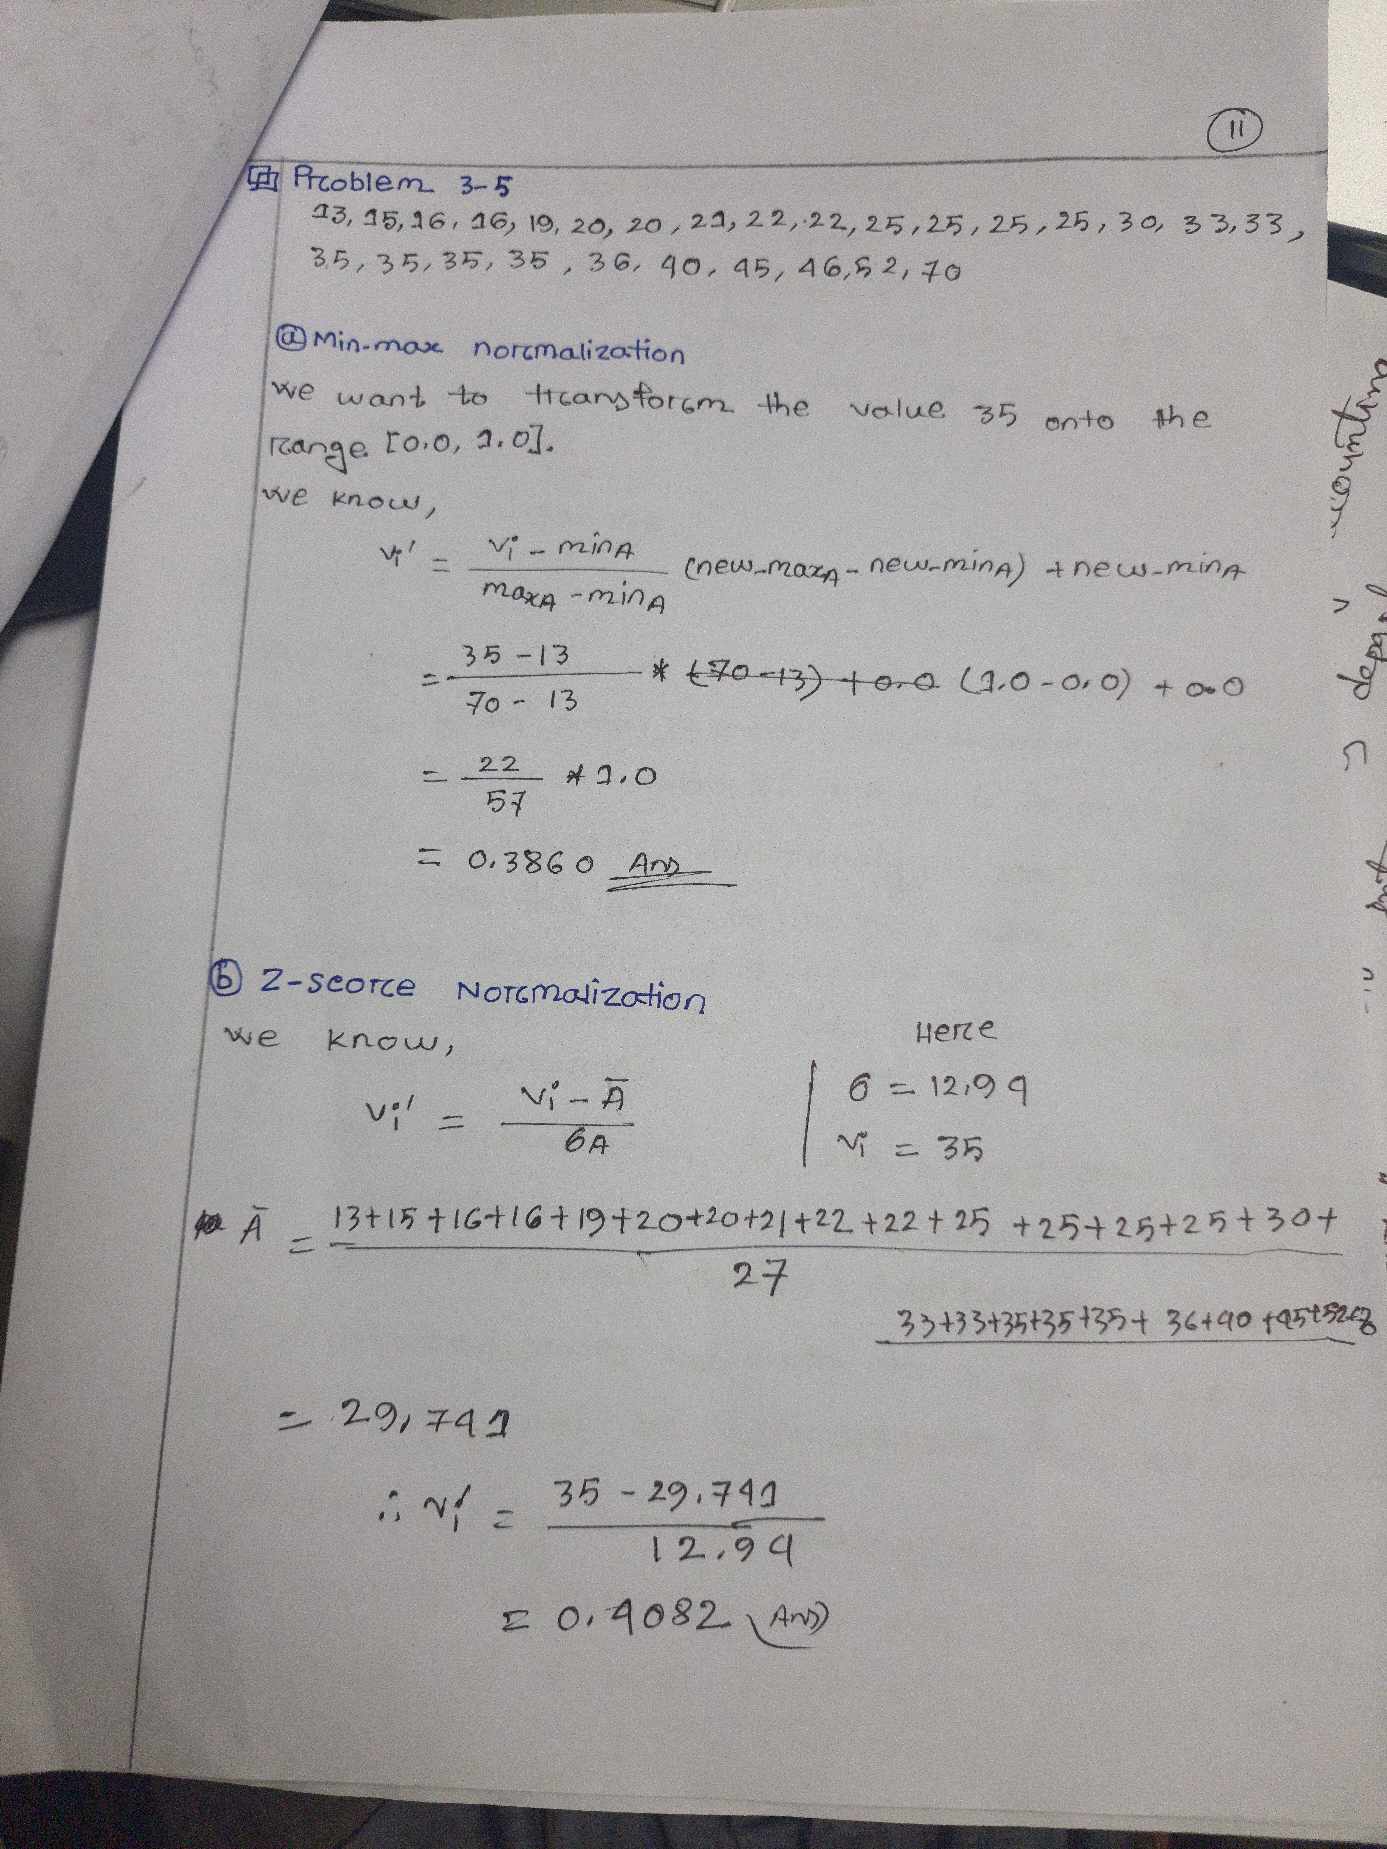 11
Problem 3-5
13, 15, 16, 16, 19, 20, 20, 21, 22, 22, 25, 25, 25, 25, 30, 33, 33,
35, 35, 35, 35, 36, 40, 45, 46, 52, 70
(a) Min-max normalization
we want to transform the value 35 onto the
range [0.0, 1.0].
we know,
vi' = (vi - minA) / (maxA - minA) (new_maxA - new_minA) + new_minA
= (35 - 13) / (70 - 13) * (70 - 13) + 0.0 (1.0 - 0.0) + 0.0
= 22 / 57 * 1.0
= 0.3860 Ans
(b) Z-score Normalization
we know,
Here
vi' = (vi - Ā) / σA
σ = 12.94
vi = 35
Ā = 13+15+16+16+19+20+20+21+22+22+25+25+25+25+30+
27
33+33+35+35+35+36+40+45+52
= 29.741
∴ vi' = (35 - 29.741) / 12.94
= 0.4082 (Ans)